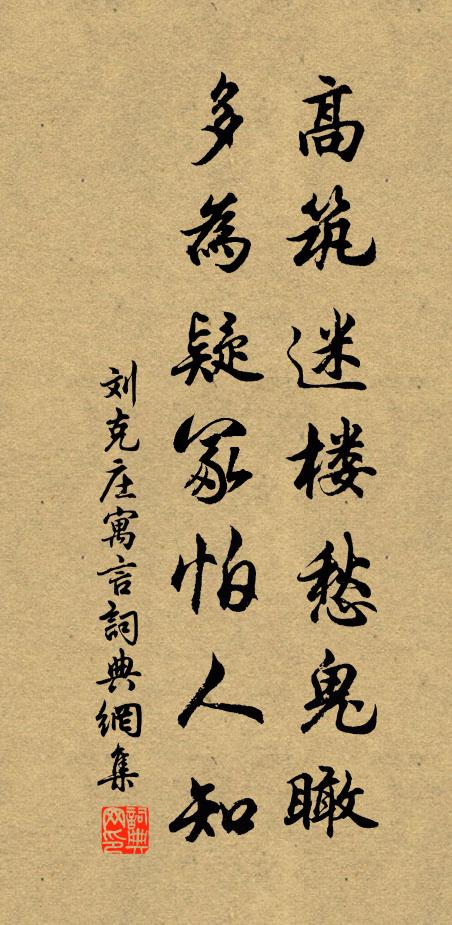 高筑迷楼愁鬼瞰
多為疑冢怕人知
刘克庄寓言詞典網集
詞典
网印